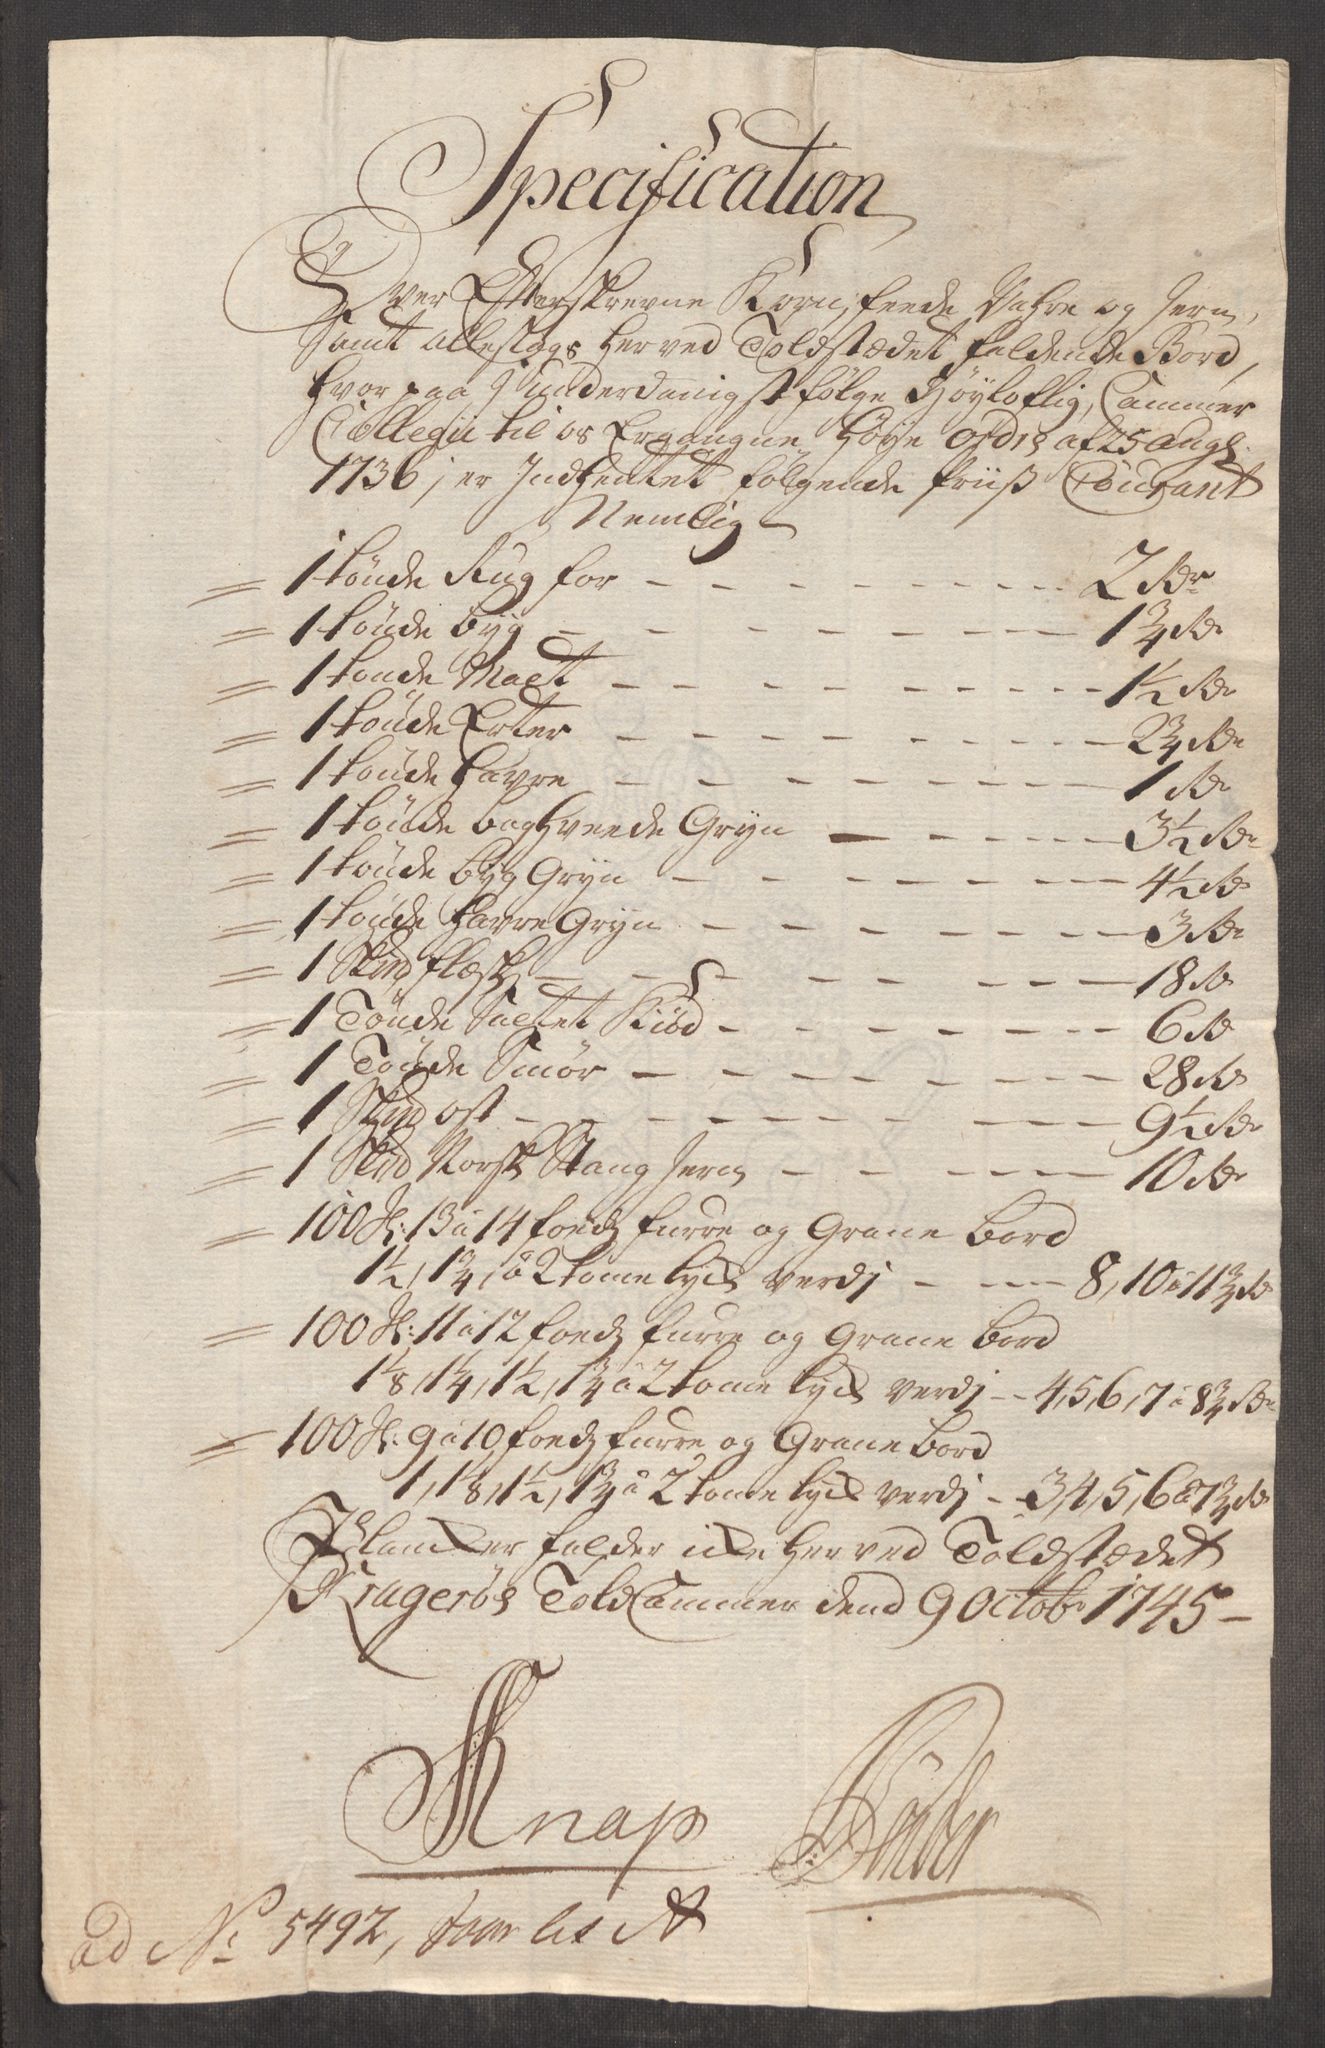 Specification
Over Efterskrevne Korn, feede Vahre og Jern,
Samt alleslags her ved Toldstædet faldende Bord,
hvor paa i underdanigst følge Höyloflig, Cammer
Collegii til os Ergangne höye ordre af 25 Augs:
1736, er Indhentet følgende Priiss Courant
Nemlig
1 tönde Rug for - - - 2 Rdr
1 tönde byg - - - 1 3/4 Rdr
1 tönde Malt - - - 1 1/2 Rdr
1 tönde Erter - - - 2 3/4 Rdr
1 tönde havre - - - 1 Rdr
1 tönde bogHveede Gryn - - - 3 1/2 Rdr
1 tönde byg Gryn - - - 4 1/2 Rdr
1 tönde havre Gryn - - - 3 Rdr
1 Skpd flæsk - - - 18 Rdr
1 Tönde Saltet Kiöd - - - 6 Rdr
1 Tönde Smör - - - 28 Rdr
1 Skpd ost - - - 9 1/2 Rdr
1 Skpd Norsk Stang Jern - - - 10 Rdr
100 St: 13 à 14 foeds furre og Grane bord
1 1/2, 1 3/4, à 2 tome tyck verdj - - - 8, 10 à 11 3/4 Rdr
100 St: 11 à 12 foeds furre og Grane bord
1 1/8, 1 1/4, 1 1/2, 1 3/4 à 2 tome tyck verdj - - 4, 5, 6, 7 à 8 3/4 Rdr
100 St: 9 à 10 foeds furre og Grane bord
1, 1 1/8, 1 1/2, 1 3/4 à 2 tome tyck verdj - - 3, 4, 5, 6 à 7 3/4 Rdr
Plancker falder icke her ved Toldstædet
Kragerös Told Cammer dend 9 Octobr 1745 -
Knap
ad No 5492, Lit A